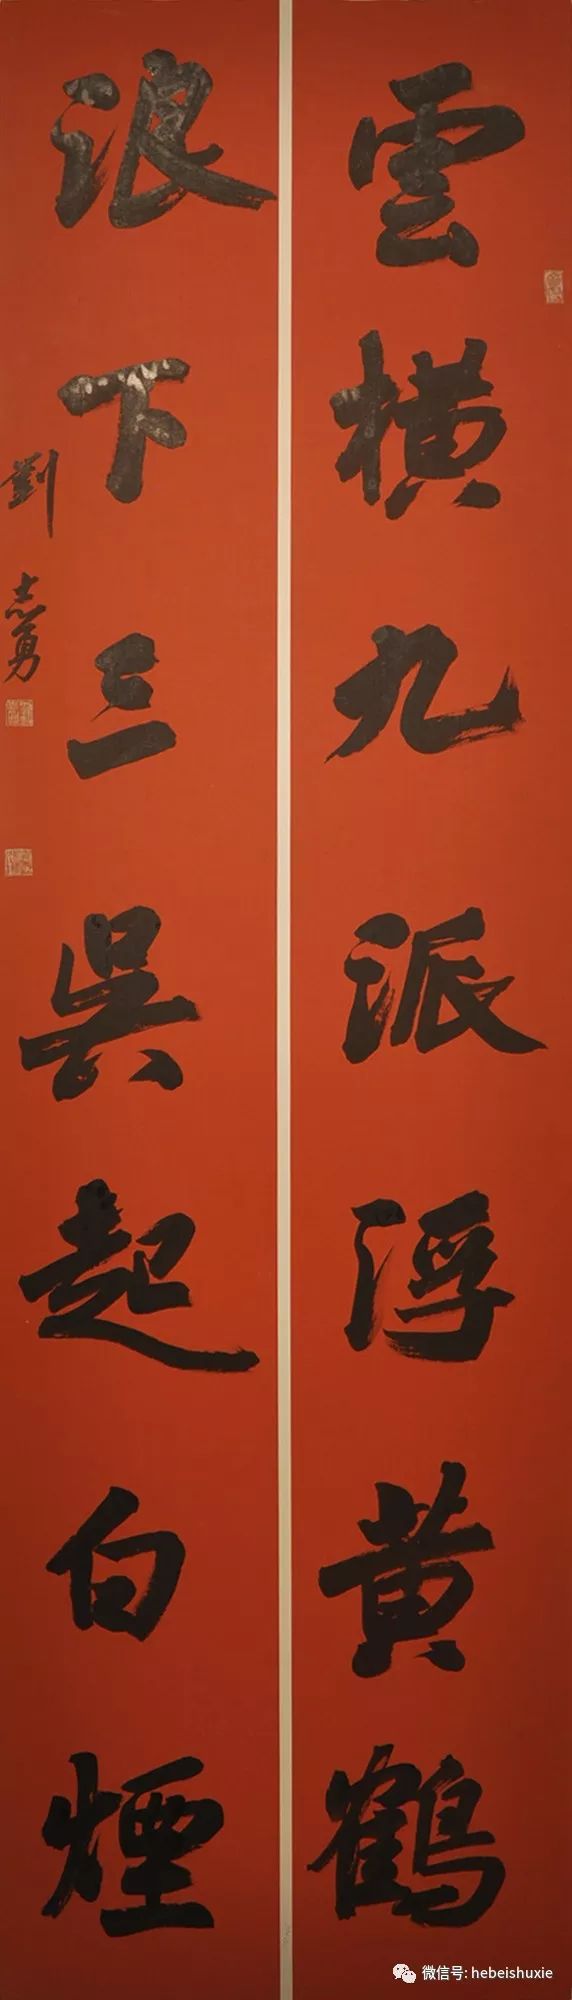 雲橫九派浮黄鶴
浪下三吳起白煙
劉志勇
微信号: hebeishuxie